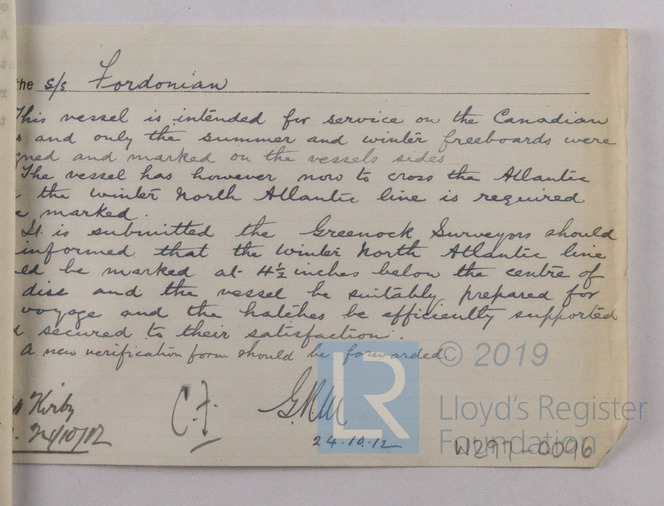 the s/s Fordonian
This vessel is intended for service on the Canadian
s and only the summer and winter freeboards were
gned and marked on the vessels sides
The vessel has however now to cross the Atlantic
the Winter North Atlantic line is required
e marked.
It is submitted the Greenock Surveyors should
informed that the Winter North Atlantic line
ld be marked at 4½ inches below the centre of
disc and the vessel be suitably prepared for
voyage and the hatches be efficiently supported
d secured to their satisfaction.
A new verification form should be forwarded.
Kirby
24/10/12
C.F.
24.10.12
LR
© 2019
Lloyd's Register
Foundation
W297-0096